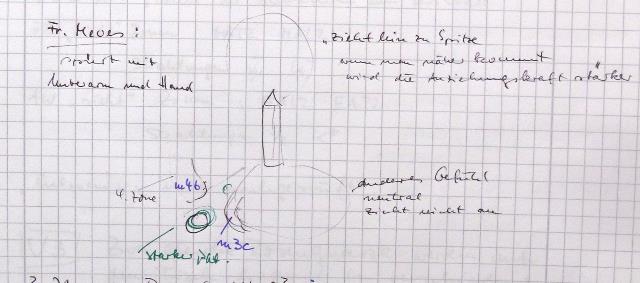 Fr. Meves:
spürt mit
Unterarm und Hand
"Zieht hin zu Spitze
wenn man näher kommt
wird die Anziehungskraft stärker
anderes Gefühl
neutral
zieht nicht an
m4b
4. tone
m3c
starker